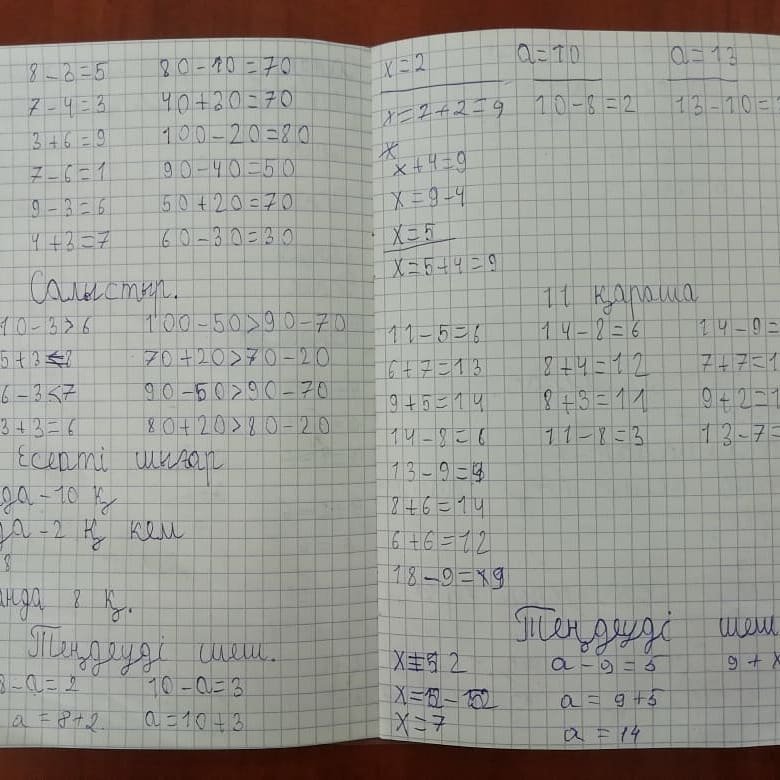 8-3=5 80-10=70
7-4=3 40+30=70
3+6=9 100-20=80
7-6=1 90-40=50
9-3=6 50+20=70
4+3=7 60-30=30
Салыстыр.
10-3>6 100-50>90-70
5+3 8 70+20>70-20
6-3<7 90-50>90-70
3+3=6 80+20>80-20
Есепті шығар
да-10 қ
да-2 қ кем
8
анда 8 қ.
Теңдеуді шеш.
8-а=2 10-а=3
а=8+2 а=10+3
х=2 а=10 а=13
х=7+2=9 10-8=2 13-10=
х
х+4=9
х=9-4
х=5
х=5+4=9
11 қараша
11-5=6 14-8=6 14-9=
6+7=13 8+4=12 7+7=1
9+5=14 8+3=11 9+2=1
14-8=6 11-8=3 13-7=
13-9=
8+6=14
6+6=12
18-9= 9
Теңдеуді шеш
2 а-9=5 9+х
х= а=9+5
х=7 а=14